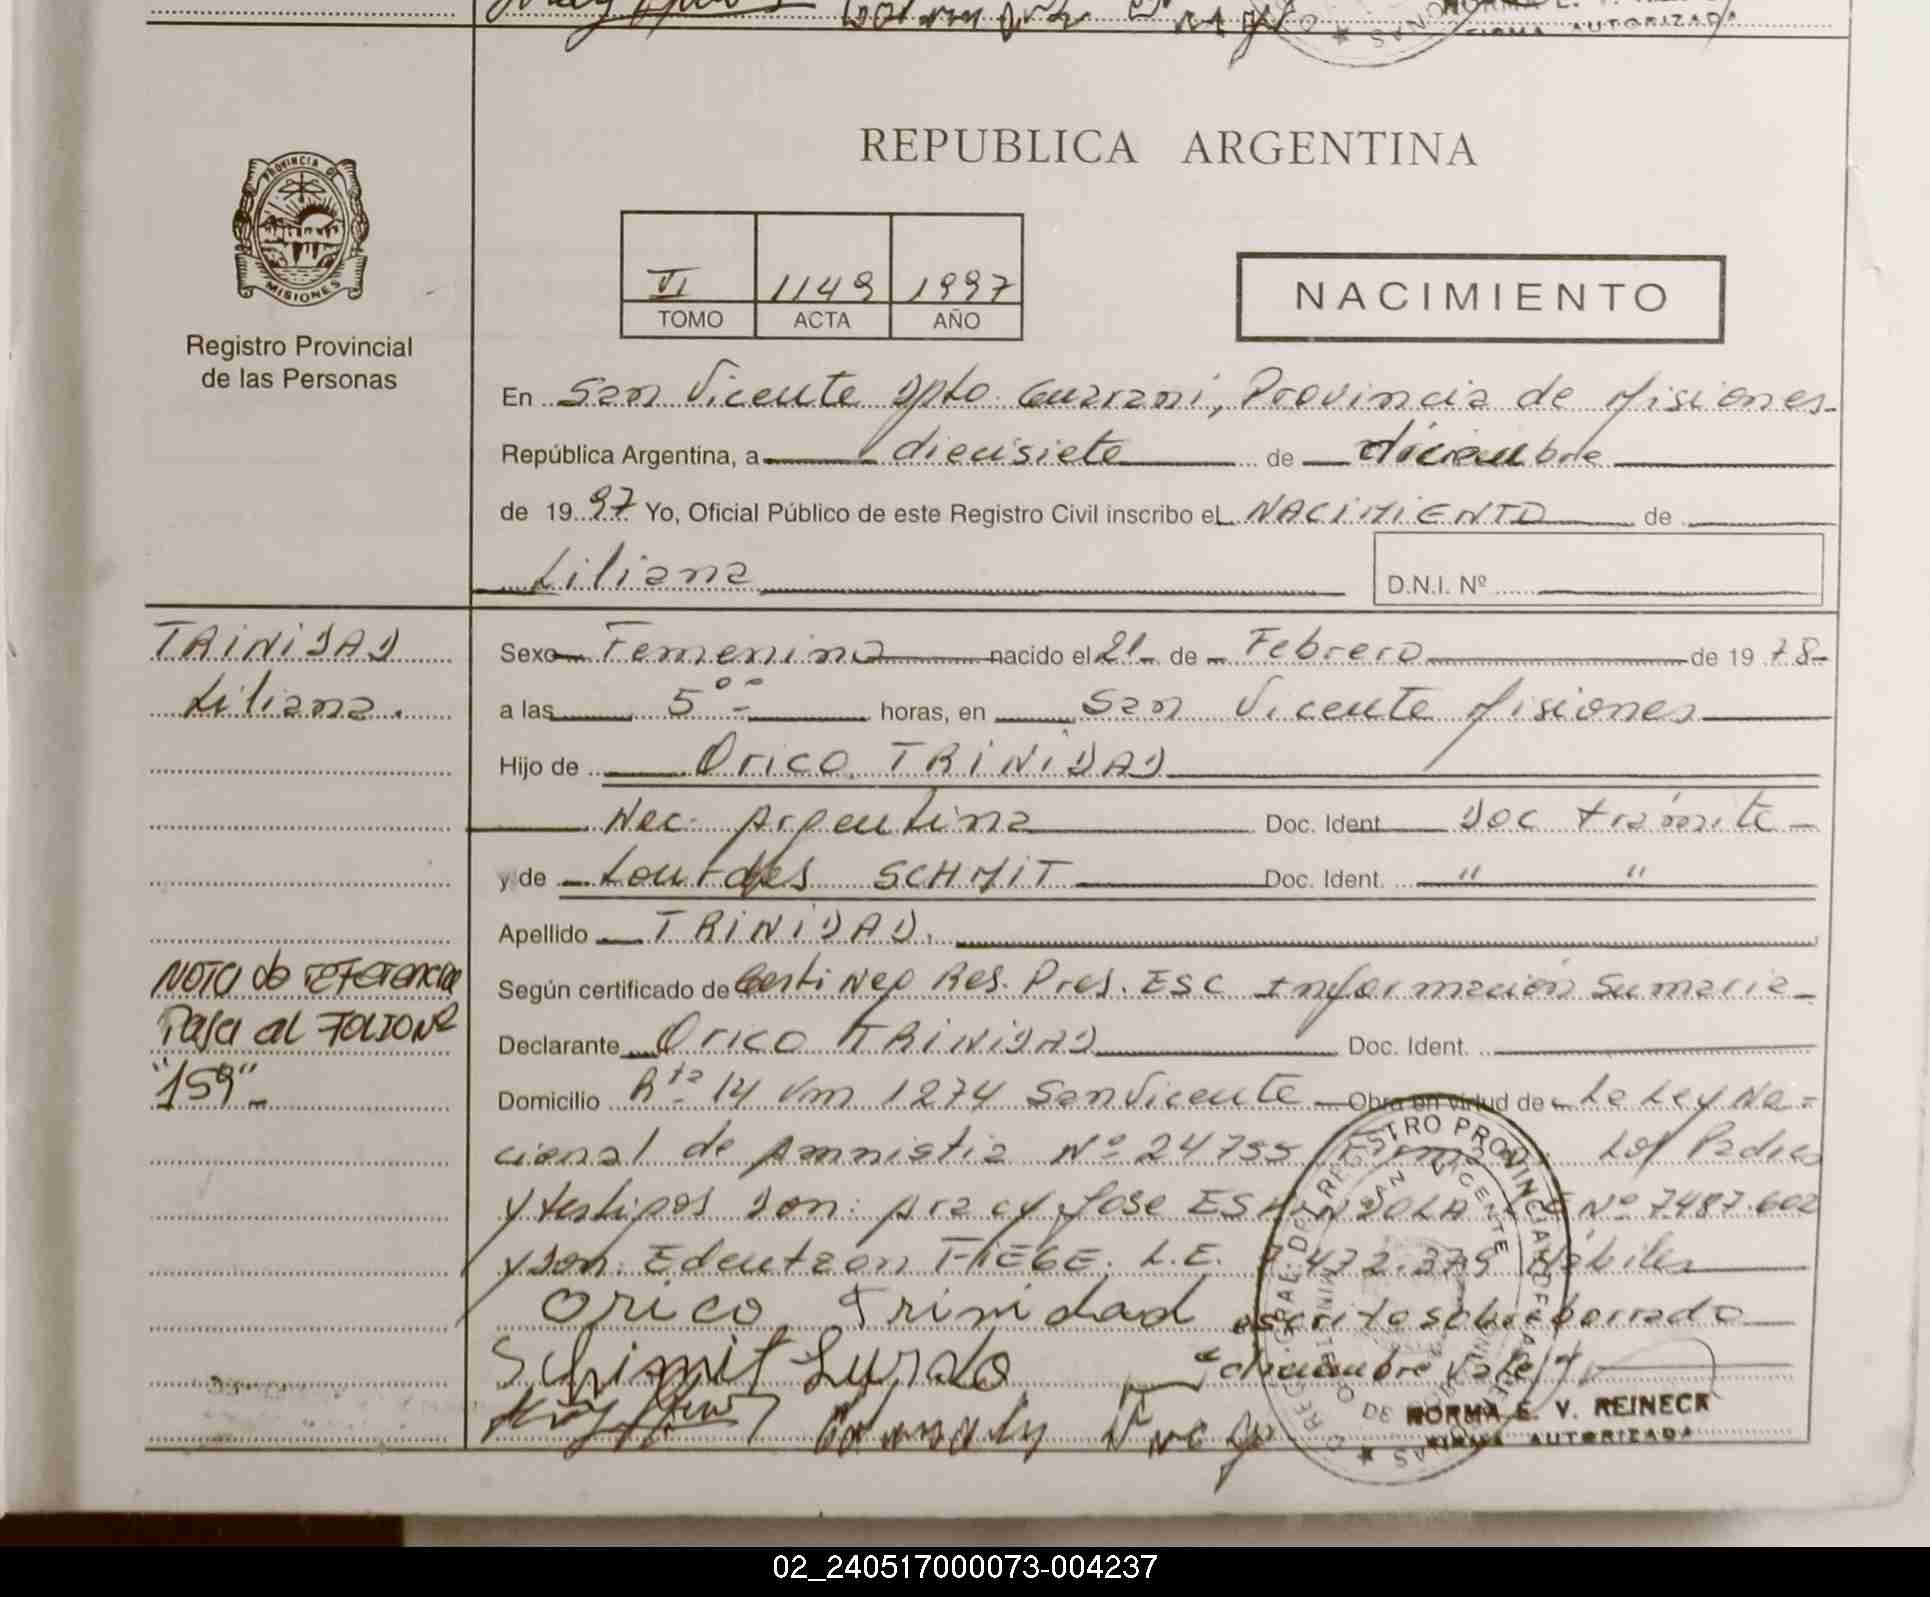 FIRMA AUTORIZADA
REPUBLICA ARGENTINA
PROVINCIA DE
MISIONES
Registro Provincial
de las Personas
VI 1149 1997
TOMO ACTA AÑO
NACIMIENTO
En San Vicente Dpto. Guarani, Provincia de Misiones
República Argentina, a diecisiete de diciembre
de 1997 Yo, Oficial Público de este Registro Civil inscribo el NACIMIENTO de
Liliana
D.N.I. Nº
TRINIDAD
Liliana.
Sexo Femenino nacido el 21 de Febrero de 1978
a las 5 00 horas, en San Vicente Misiones
Hijo de Orico TRINIDAD
Nac. Argentina Doc. Ident. Doc trámite
y de Lourdes SCHMIT Doc. Ident. " "
Apellido TRINIDAD.
NOTA de referencia
Pasa al FOLIO Nº
"159"
Según certificado de Certi Neg Res. Pres. ESC Información Sumaria
Declarante Orico TRINIDAD Doc. Ident.
Domicilio Rta 14 Km 1274 San Vicente Obra en virtud de La Ley Na=
cional de Amnistia Nº 24755 Los Padres
y testigos son: José ESPINDOLA Nº 7487.602
y Don: TIEGE. L.E. 7.472.379 Hábiles
Orico Trinidad escrito sobre borrado
Schimit "diciembre Vale"
NORMA E. V. REINECK
FIRMA AUTORIZADA
02_240517000073-004237